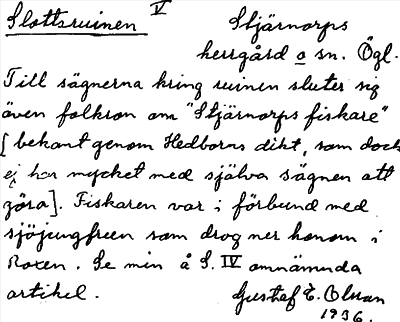 Slottsruinen V Stjärnorps
herrgård o sn. Ögl.
Till sägnerna kring ruinen sluter sig
även folktron om "Stjärnorps fiskare"
[bekant genom Hedborns dikt, som dock
ej har mycket med själva sägnen att
göra]. Fiskaren var i förbund med
sjöjungfrun som drog ner honom i
Roxen. Se min å S. IV omnämnda
artikel. Gustaf E. Olsson
1936.